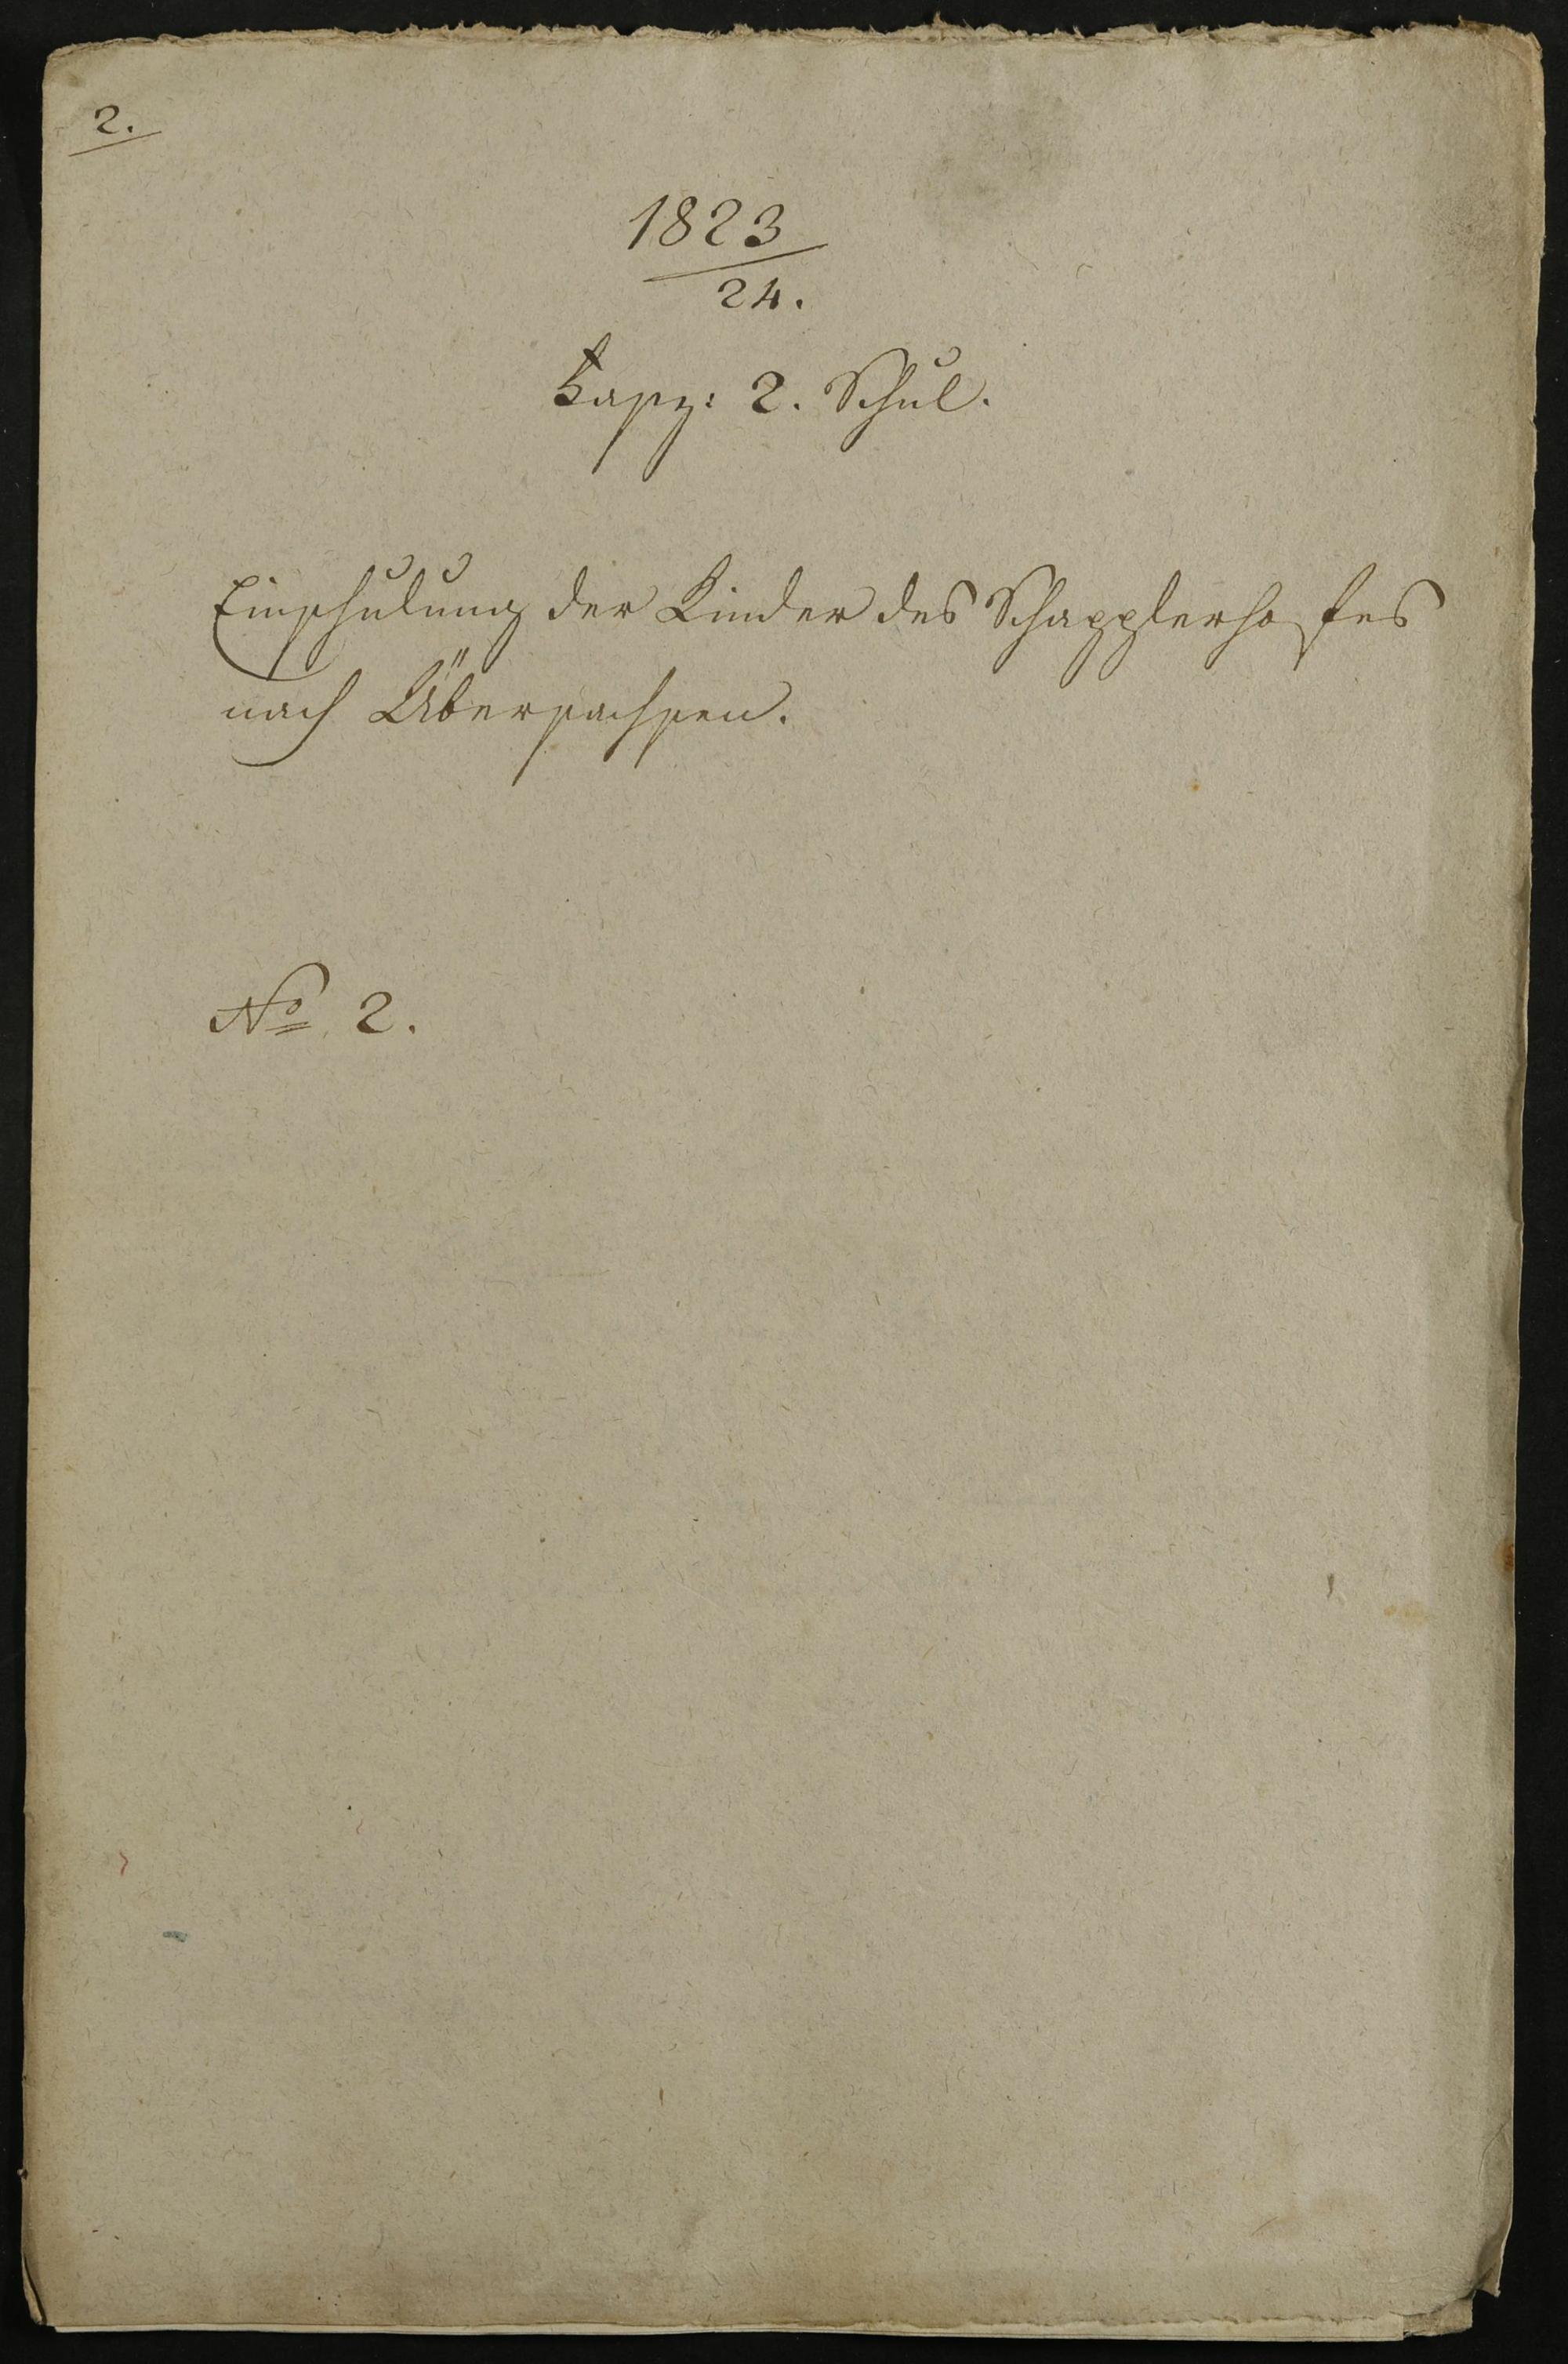 2.
1823
24.
Fasz: 2. Schul.
Einschulung der Kinder des Schapplerhofes
nach Übersachsen.
No 2.